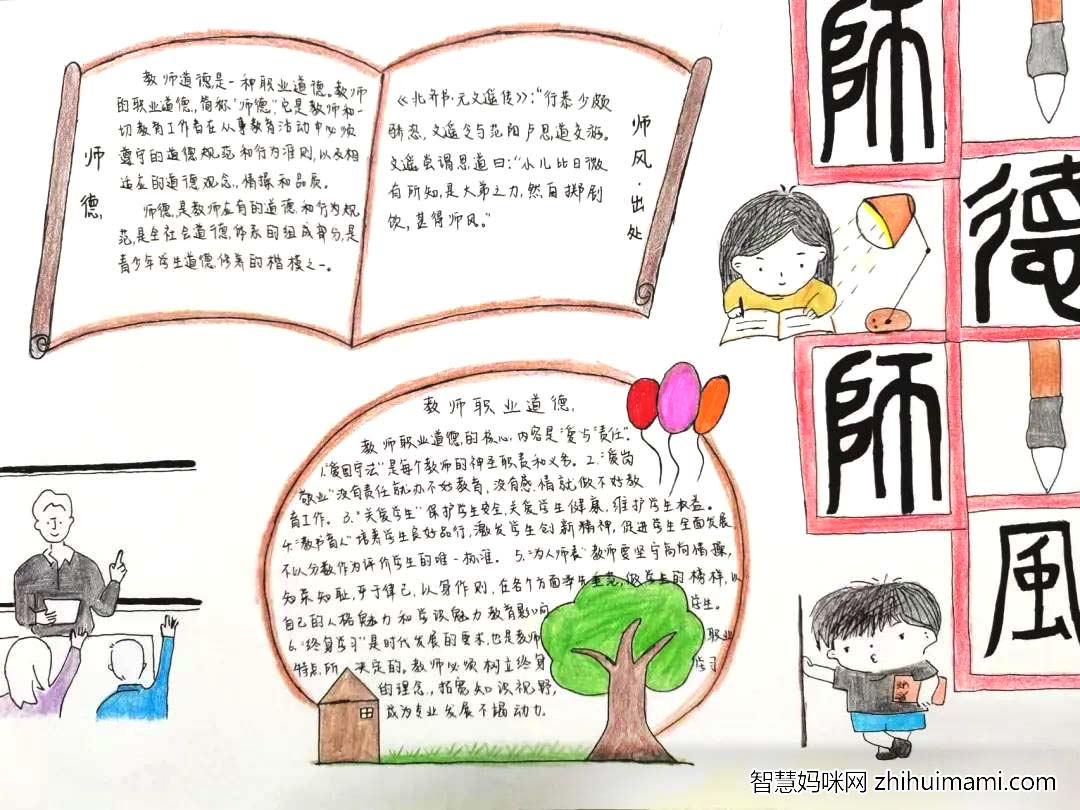 师德
教师道德是一种职业道德。教师
的职业道德,简称"师德",它是教师和一
切教育工作者在从事教育活动中必须
遵守的道德规范和行为准则,以及相
适应的道德观念、情操和品质。
师德,是教师应有的道德和行为规
范,是全社会道德体系的组成部分,是
青少年学生道德修养的楷模之一。
师风·出处
《北齐书·元文遥传》:"行恭少颇
骄恣,文遥令与范阳卢思道交游。
文遥尝谓思道曰:"小儿比日微
有所知,是大弟之力,然白掷剧
饮,甚得师风。"
師
德
師
風
教师职业道德
教师职业道德的核心内容是"爱与"责任"。
1."爱国守法"是每个教师的神圣职责和义务。2."爱岗
敬业"没有责任就办不好教育,没有感情就做不好教
育工作。3."关爱学生"保护学生安全,关爱学生健康,维护学生权益。
4."教书育人"培养学生良好品行,激发学生创新精神,促进学生全面发展,
不以分数作为评价学生的唯一标准。5."为人师表"教师要坚守高尚情操,
知荣知耻,严于律己,以身作则,在各个方面率先垂范,做学生的榜样,以
自己的人格魅力和学识魅力教育影响学生。
6."终身学习"是时代发展的要求,也是教师职业
特点所决定的。教师必须树立终身学习
的理念,拓宽知识视野,
成为专业发展不竭动力。
智慧妈咪网 zhihuimami.com